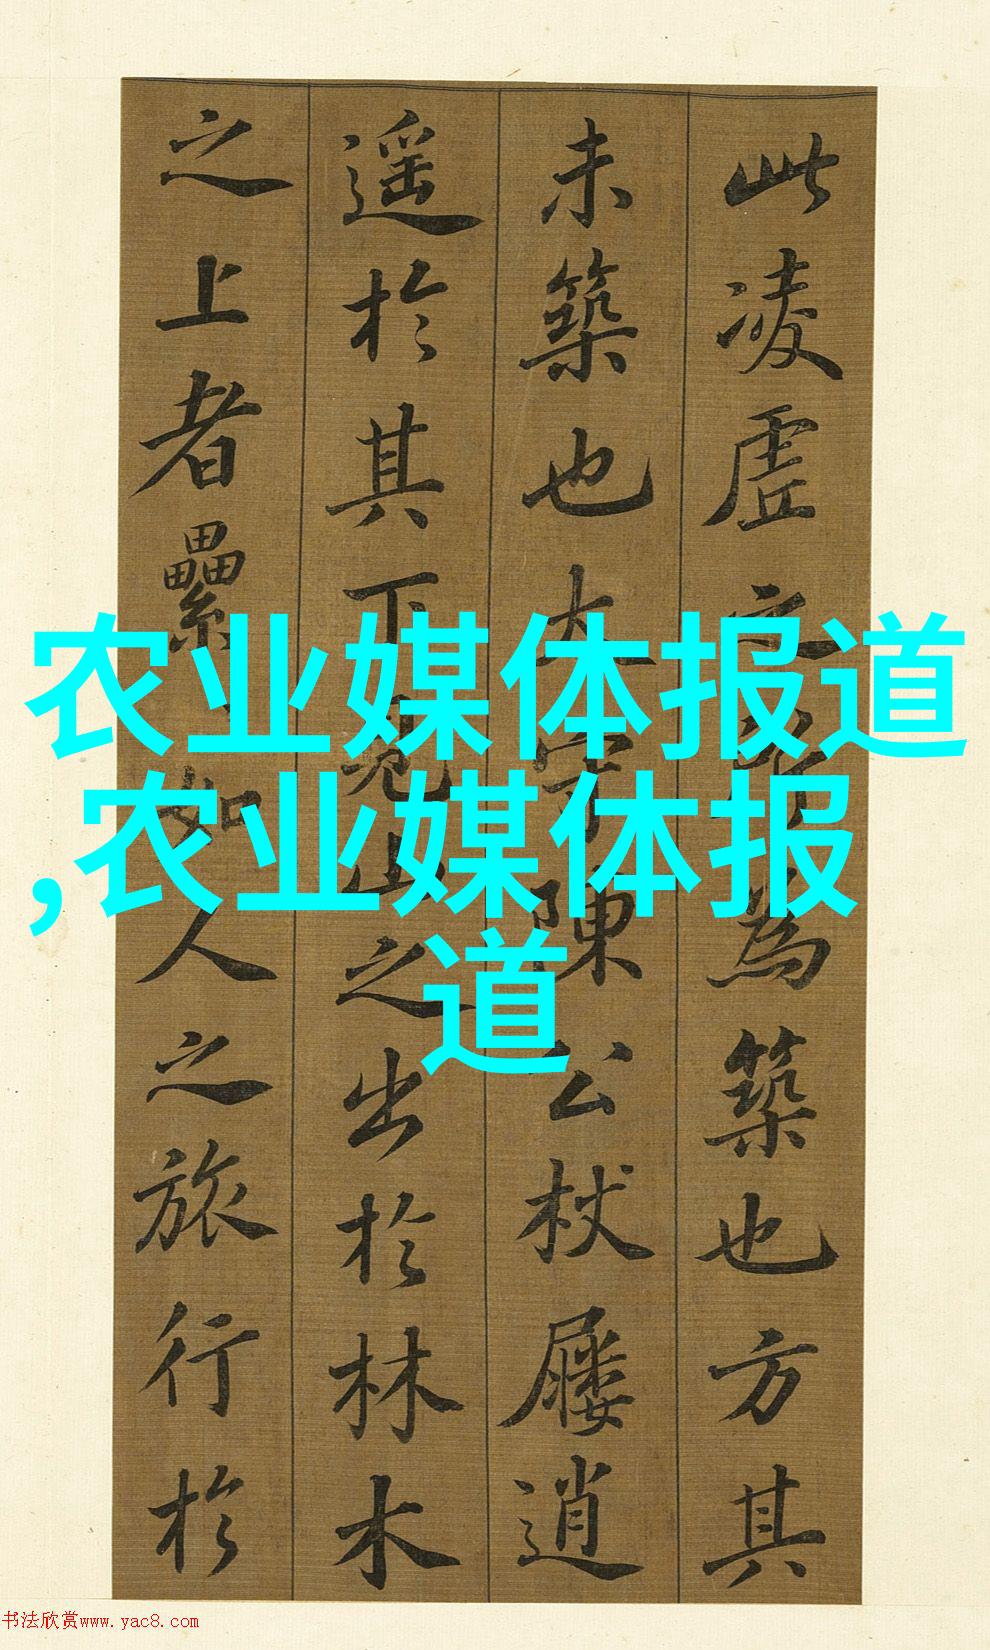 此凌虗之所為築也方其
未築也大守陳公杖屨逍
遥於其下見山之出於林木
之上者纍〻如人之旅行於
农业媒体报道
,农业媒体报
道
书法欣赏www.yac8.com